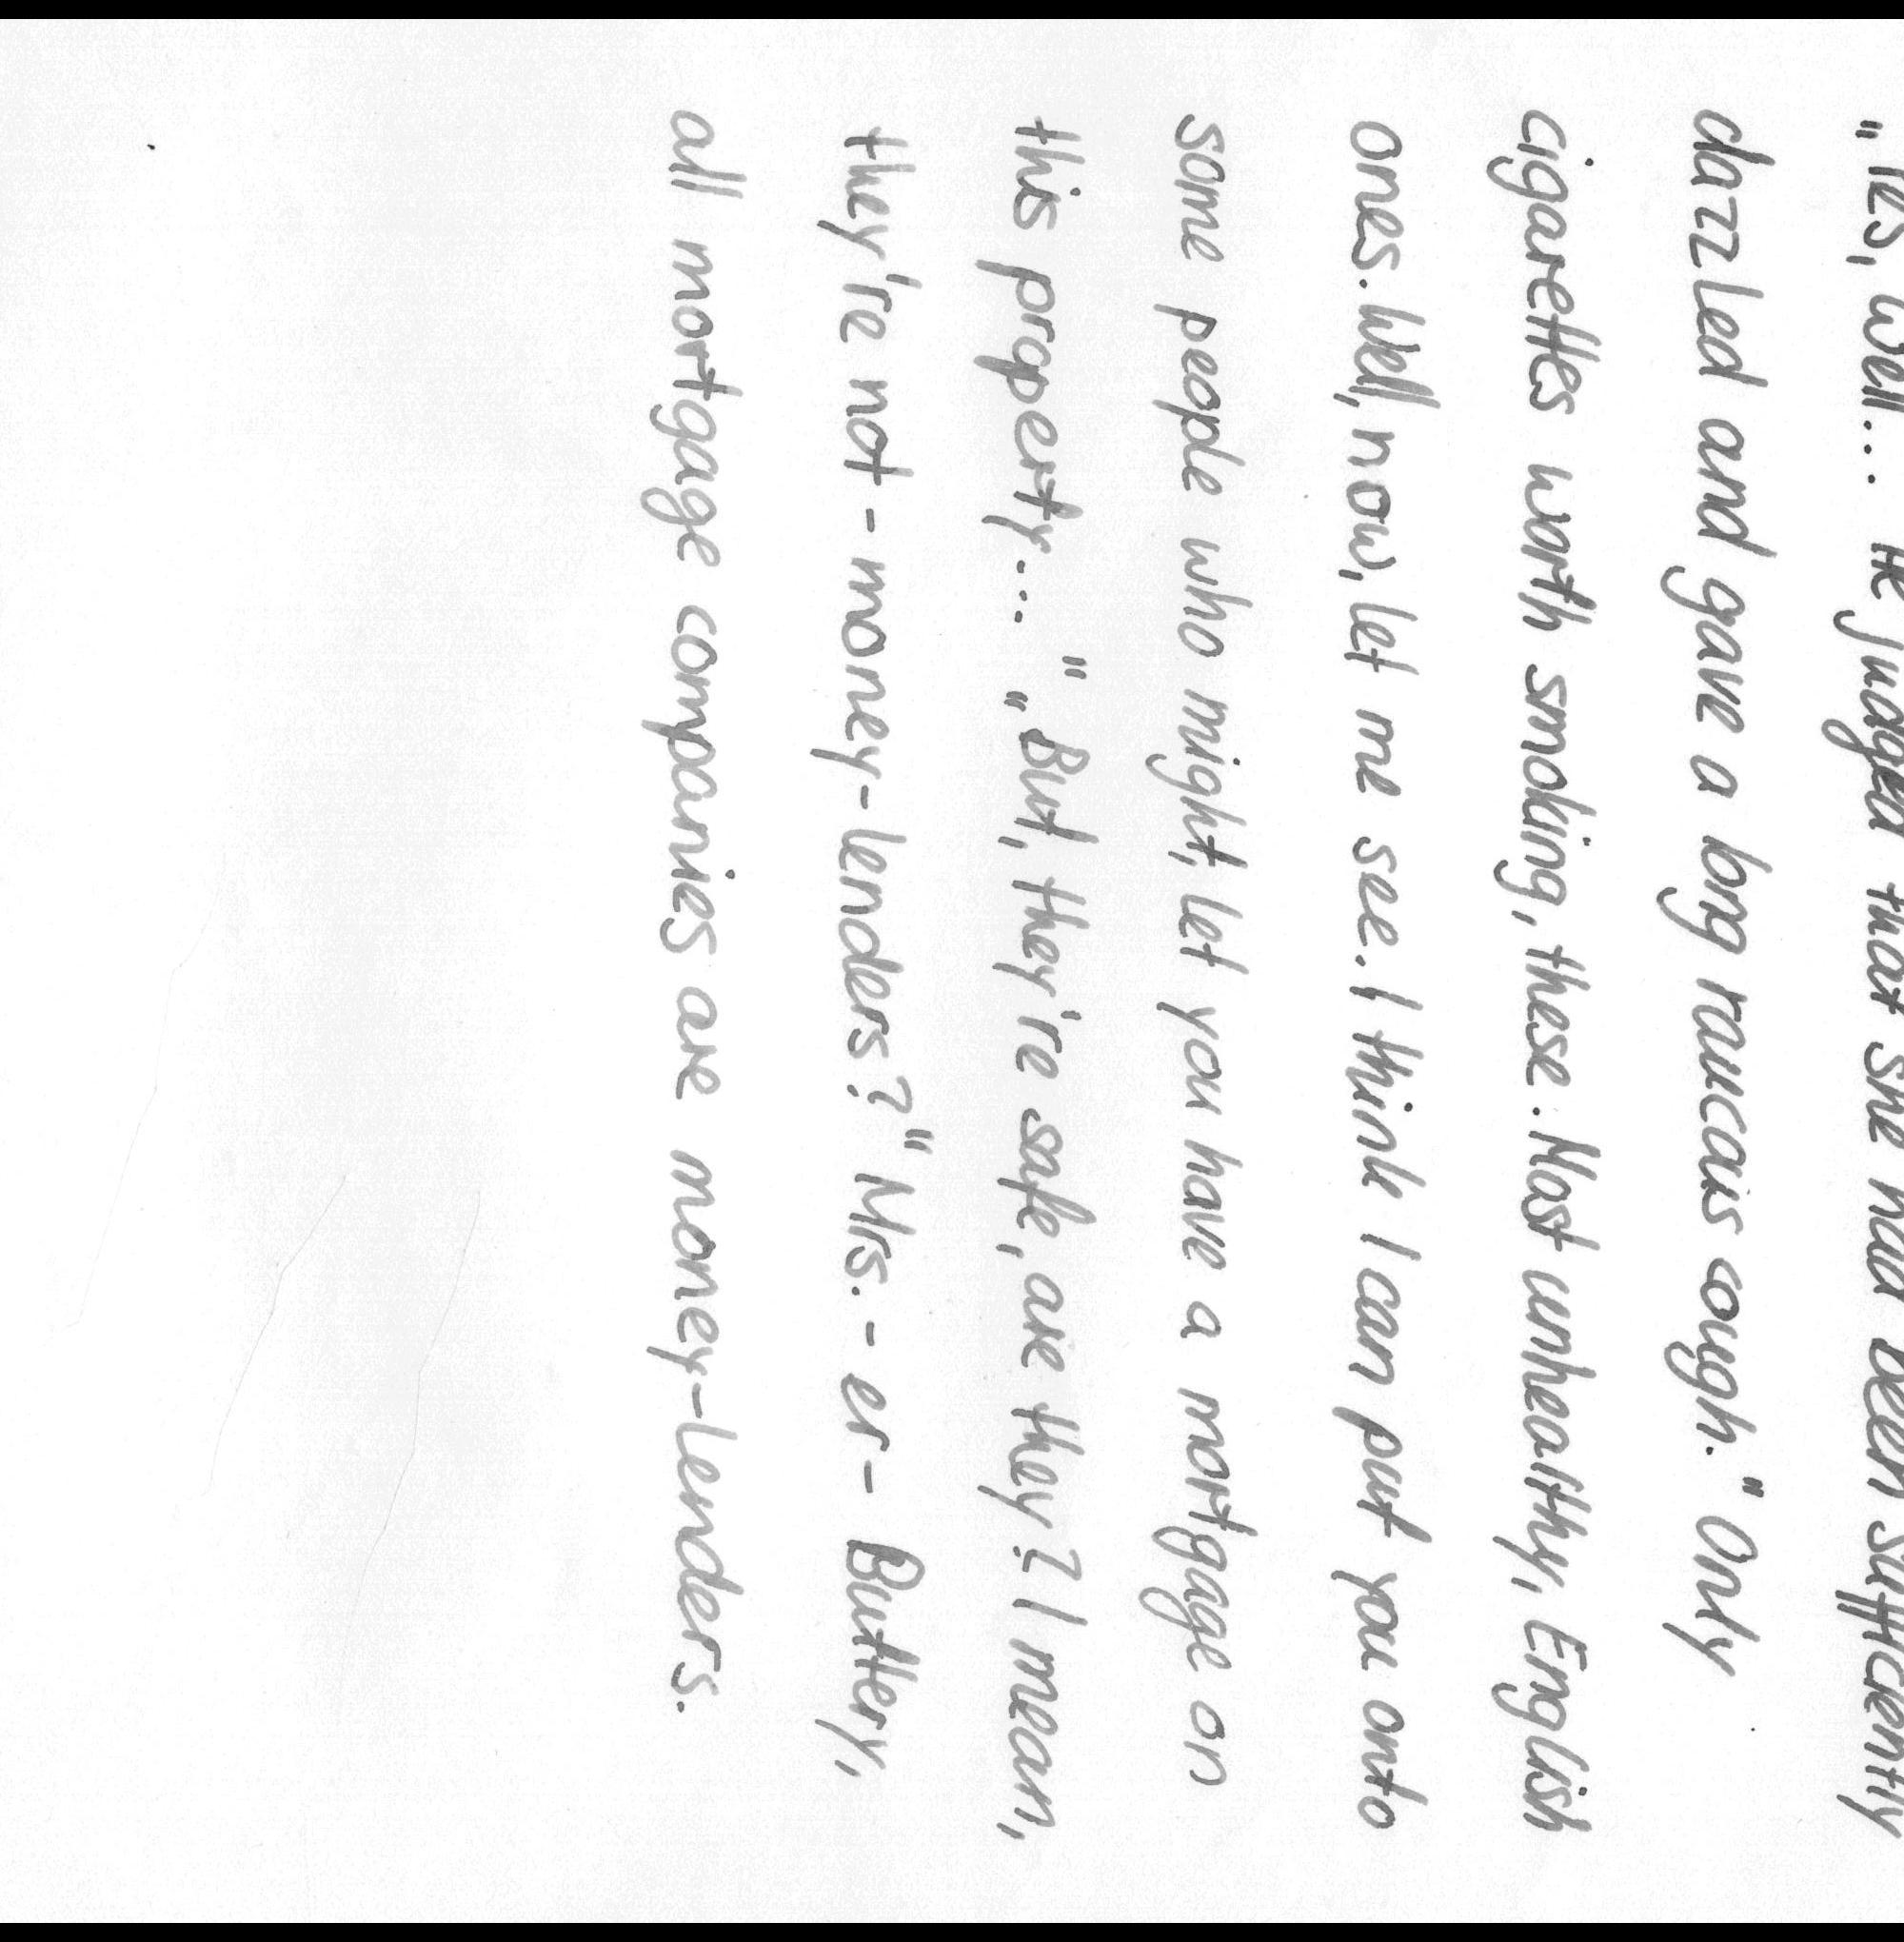 „Yes, well... He judged that she had been sufficiently
dazzled and gave a long raucais cough." Only
cigarettes worth smoking, these. Most unhealthy, English
ones. Well, now, let me see. I think I can put you onto
some people who might, let you have a mortgage on
this property...." „But, they're safe, are they? I mean,
they're not - money-lenders?" Mrs. - er - Buttery,
all mortgage companies are money-lenders.